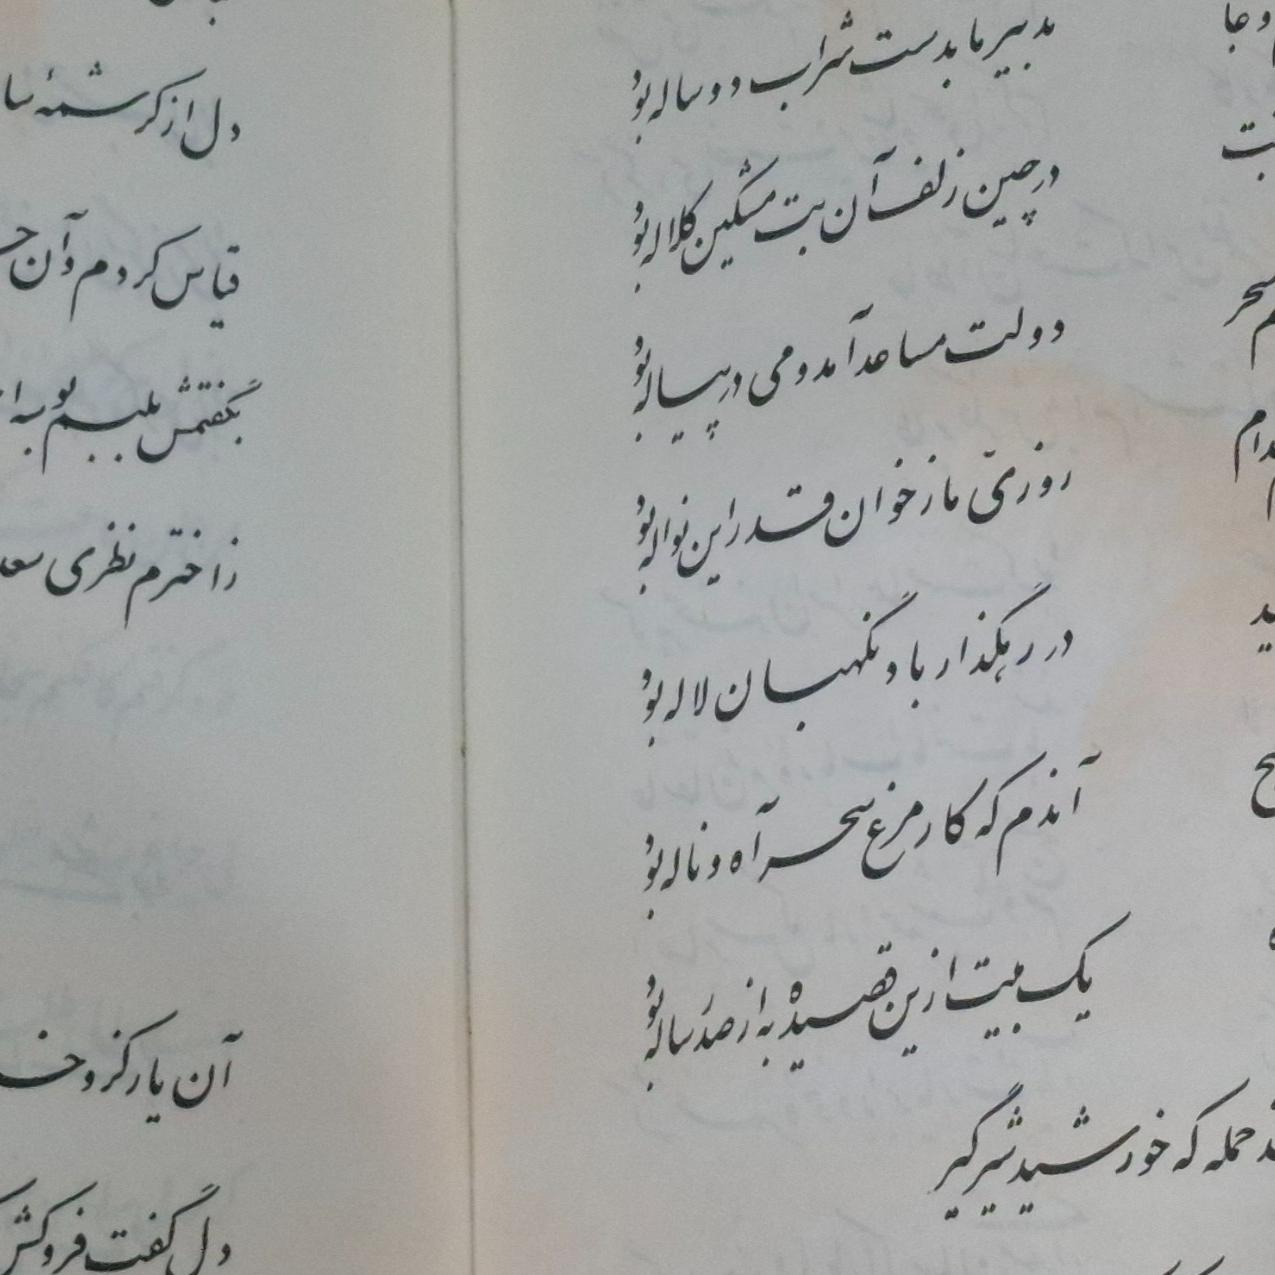 وعا
تدبیر ما بدست شراب دو ساله بود
در چین زلف آن بت مشکین کلاله بود
سحر
دولت مساعد آمد و می در پیاله بود
روزیّ ما ز خوان قدر این نواله بود
در رهگذار باد نگهبان لاله بود
آندم که کار مرغ سحر آه و ناله بود
یک بیت ازین قصیده به از صد رساله بود
حمله که خورشید شیر گیر
دل از کرشمهٔ سا
قیاس کردم و آن
بگفتمش بلبم بوسه
ز اخترم نظری سعد
آن یار کزو خا
دل گفت فروکش